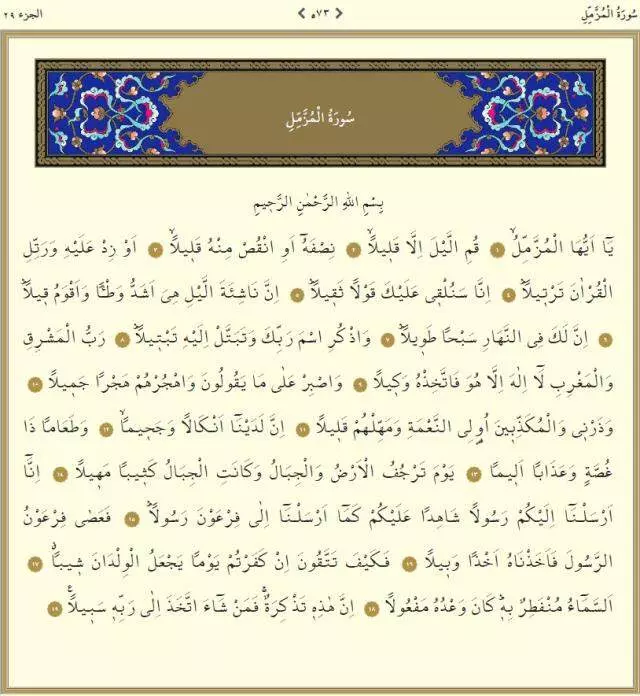 سُورَةُ الْمُزَّمِّلِ ❮ ٥٧٣ ❯ الجزء ٢٩
سُورَةُ الْمُزَّمِّلِ
بِسْمِ اللهِ الرَّحْمٰنِ الرَّحِيمِ
يَٓا اَيُّهَا الْمُزَّمِّلُۙ ١ قُمِ الَّيْلَ اِلَّا قَلِيلاًۙ ٢ نِصْفَهُٓ اَوِ انْقُصْ مِنْهُ قَلِيلاًۙ ٣ اَوْ زِدْ عَلَيْهِ وَرَتِّلِ
الْقُرْاٰنَ تَرْتِيلاًۜ ٤ اِنَّا سَنُلْقِي عَلَيْكَ قَوْلاً ثَقِيلاً ٥ اِنَّ نَاشِئَةَ الَّيْلِ هِيَ اَشَدُّ وَطْـٔاً وَاَقْوَمُ قِيلاًۜ
٦ اِنَّ لَكَ فِي النَّهَارِ سَبْحًا طَوِيلاًۜ ٧ وَاذْكُرِ اسْمَ رَبِّكَ وَتَبَتَّلْ اِلَيْهِ تَبْتِيلاًۜ ٨ رَبُّ الْمَشْرِقِ
وَالْمَغْرِبِ لَٓا اِلٰهَ اِلَّا هُوَ فَاتَّخِذْهُ وَكِيلاً ٩ وَاصْبِرْ عَلٰى مَا يَقُولُونَ وَاهْجُرْهُمْ هَجْرًا جَمِيلاً ١٠
وَذَرْنِي وَالْمُكَذِّبِينَ اُولِي النَّعْمَةِ وَمَهِّلْهُمْ قَلِيلاً ١١ اِنَّ لَدَيْنَٓا اَنْكَالاً وَجَحِيمًاۙ ١٢ وَطَعَامًا ذَا
غُصَّةٍ وَعَذَابًا اَلِيمًا ١٣ يَوْمَ تَرْجُفُ الْاَرْضُ وَالْجِبَالُ وَكَانَتِ الْجِبَالُ كَثِيبًا مَهِيلاً ١٤ اِنَّٓا
اَرْسَلْنَٓا اِلَيْكُمْ رَسُولاً شَاهِدًا عَلَيْكُمْ كَمَٓا اَرْسَلْنَٓا اِلٰى فِرْعَوْنَ رَسُولاًۜ ١٥ فَعَصٰى فِرْعَوْنُ
الرَّسُولَ فَاَخَذْنَاهُ اَخْذًا وَبِيلاً ١٦ فَكَيْفَ تَتَّقُونَ اِنْ كَفَرْتُمْ يَوْمًا يَجْعَلُ الْوِلْدَانَ شِيبًاۗ ١٧
اَلسَّمَٓاءُ مُنْفَطِرٌ بِهِۜ كَانَ وَعْدُهُ مَفْعُولاً ١٨ اِنَّ هٰذِهِ تَذْكِرَةٌۚ فَمَنْ شَٓاءَ اتَّخَذَ اِلٰى رَبِّهِ سَبِيلاً۟ ١٩